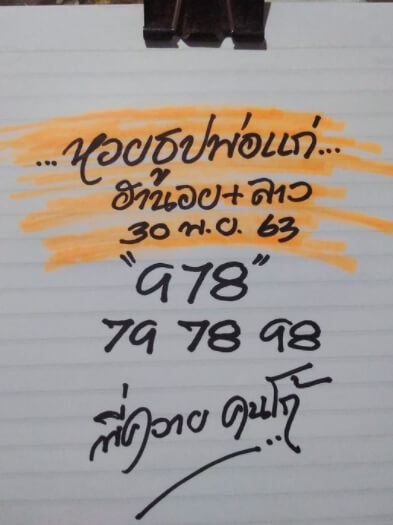 ...หวยธูปพ่อแก่...
ฮานอย+ลาว
30 พ.ย. 63
"978"
79 78 98
พี่ควาย คนโก้